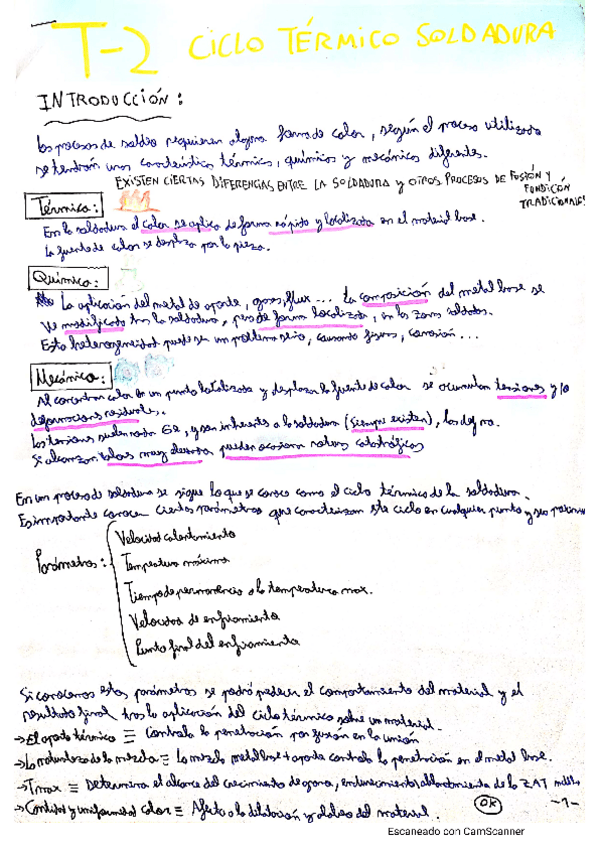 T-2 CICLO TÉRMICO SOLDADURA
INTRODUCCIÓN:
Los procesos de soldeo requieren alguna forma de calor, según el proceso utilizado
se tendrán unas características térmicas, químicas y mecánicas diferentes.
EXISTEN CIERTAS DIFERENCIAS ENTRE LA SOLDADURA y OTROS PROCESOS DE FUSIÓN Y
FUNDICIÓN
TRADICIONALES
Térmica:
En la soldadura el calor se aplica de forma rápida y localizada en el material base.
La fuente de calor se desplaza por la pieza.
Química:
La aplicación del metal de aporte, gases, flux... La composición del metal base se
ve modificada tras la soldadura, pero de forma localizada, en las zonas soldadas.
Esta heterogeneidad puede ser un problema serio, causando fisuras, corrosión...
Mecánica:
Al concentrar calor en un punto localizado y desplazar la fuente de calor se acumulan tensiones y/o
deformaciones residuales.
Las tensiones suelen, y son inherentes a la soldadura (siempre existen), las def no.
Si alcanzan valores muy elevados pueden ocasionar roturas catastróficas
En un proceso de soldadura se sigue lo que se conoce como el ciclo térmico de la soldadura.
Es importante conocer ciertos parámetros que caracterizan este ciclo en cualquier punto y sus
Parámetros:
Velocidad calentamiento
Temperatura máxima
Tiempo de permanencia a la temperatura max.
Velocidad de enfriamiento
Punto final del enfriamiento
Si conocemos estos parámetros se podrá predecir el comportamiento del material y el
resultado final tras la aplicación del ciclo térmico sobre un material.
→ El aporte térmico ≡ Controla la penetración por fusión en la unión
→ La naturaleza de la mezcla ≡ La mezcla metal base + aporte controla la penetración en el metal base.
→ Tmax ≡ Determina el alcance del crecimiento de grano, endurecimiento/ablandamiento de la ZAT
→ Cantidad y uniformidad calor ≡ Afecta a la dilatación y del material.
OK
-1-
Escaneado con CamScanner